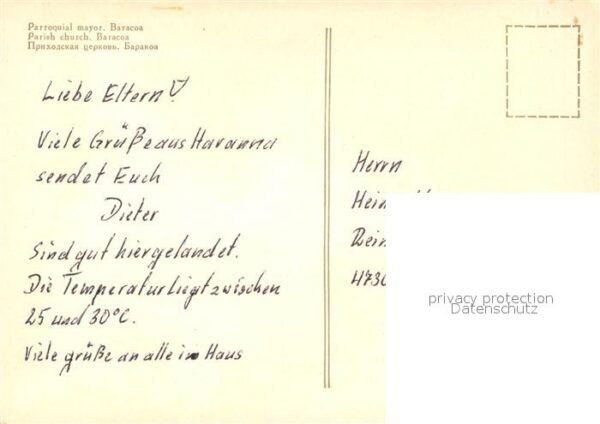 Parroquial mayor. Baracoa
Parish church. Baracoa
Приходская церковь. Баракоа
Liebe Eltern!
Viele Grüße aus Havanna
sendet Euch
Dieter
Sind gut hier gelandet.
Die Temperatur liegt zwischen
25 und 30°C.
Viele grüße an alle im Haus
Herrn
Hein
4730
privacy protection
Datenschutz